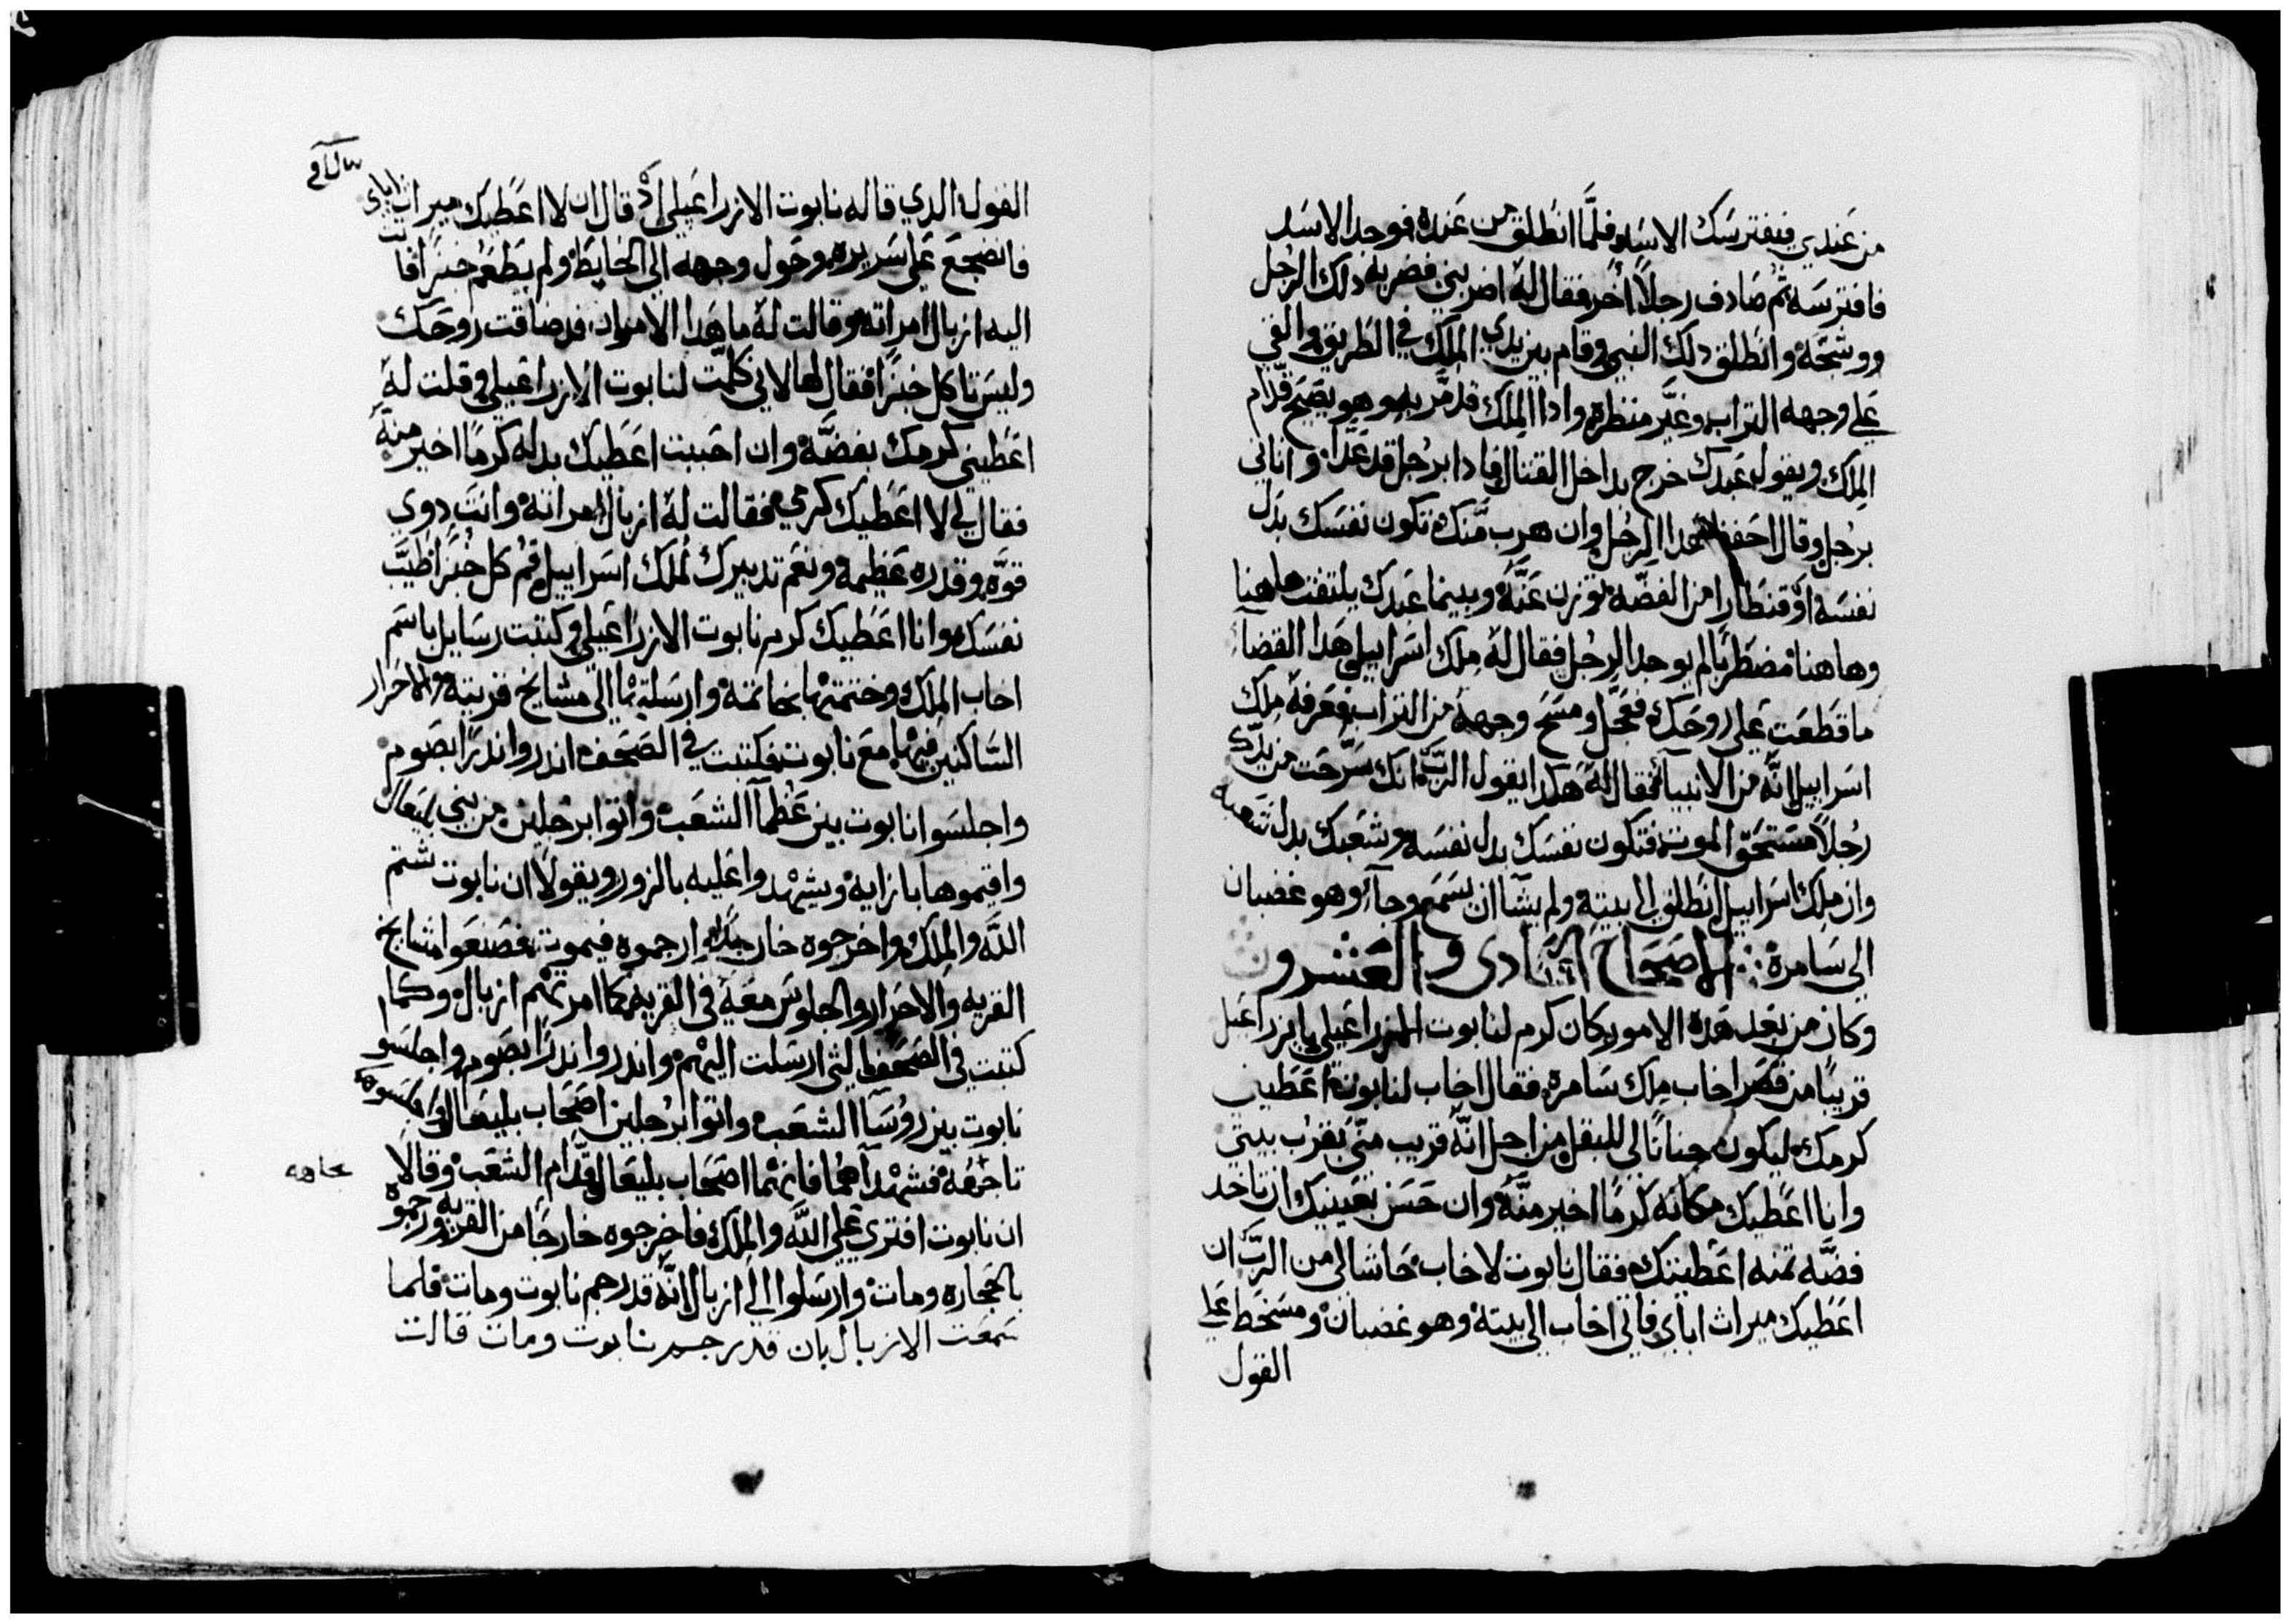 من عندي فيفترسك الاسد فلما انطلق من عنده فوجد الاسد
فافترسه ثم صادف رجلاً اخر فقال له اضربني فضربه دلك الرجل
ووشجه وانطلق دلك النبي وقام بين يدي الملك في الطريق والقي
علي وجهه التراب وغير منظره وادا الملك قد مر به وهو يصيح قدام
الملك ويقول عبدك خرج بداخل القتال فادا برجل قد عدا واتاني
برجل وقال احفظ هدا الرجل وان هرب منك تكون نفسك بدل
نفسه او قنطارا من الفضه توزن عنه وبينما عبدك يلتفت هاهنا
وهاهنا مضطربا لم يوجد الرجل فقال له ملك اسراييل هدا القضا
ما قطعت علي روحك فعجل ومسح وجهه من التراب فعرفه ملك
اسراييل انه من الانبيا فقال له هكدا يقول الرب انك سرحت من يدك
رجلاً مستحق الموت فتكون نفسك بدل نفسه وشعبك بدل شعبه
وان ملك اسراييل انطلق الي بيته ولم يشا ان يسمع وجآ وهو غضبان
الي سامرة الاصحاح الحادي والعشرون
وكان من بعد هده الامور كان كرم لنابوت اليزراعيلي بايزراعيل
قريبًا من قصر اخاب ملك سامره فقال اخاب لنابوت اعطيني
كرمك ليكون جنانا لي للبقل من اجل انه قريب مني بقرب بيتي
وانا اعطيك مكانه كرمًا اخير منه وان حسن بعينيك ان تاخد
فضه تمنه اعطيتك فقال نابوت لاخاب حاشا لي من الرب ان
اعطيك ميراث اباي فاتي اخاب الي بيته وهو غضبان ومسخط علي
القول
القول الدي قاله نابوت الازراعيلي اد قال ان لا اعطيك ميراث اباي
فانضجع علي سريره وحول وجهه الي الحايط ولم يطعم خبزًا فاتت
اليه ازبال امراته وقالت له ما هدا الامر ان قد ضاقت روحك
وليس تاكل خبزًا فقال لها لاني كلمت لنابوت الازراعيلي وقلت له
اعطيني كرمك بفضه وان احببت اعطيك بدله كرمًا اخير منه
فقال لي لا اعطيك كرمي فقالت له ازبال امراته وانت دوي
قوه وقدره عظيمه ونعم تدبيرك لملك اسراييل قم كل خبزا طيب
نفسك وانا اعطيك كرم نابوت الازراعيلي وكتبت رسايل باسم
اخاب الملك وختمتها بخاتمه وارسلتها الي مشايخ قريته والاحرار
الساكنين فيها مع نابوت فكتبت في الصحف اندروا ندرا بصوم
واجلسوا نابوت بين عظمآ الشعب واتوا برجلين من بني بليعال
واقيموها بازايه ويشهدوا عليه بالزور ويقولا ان نابوت شتم
الله والملك واخرجوه خارجا ارجموه فيموت فصنعوا مشايخ
القريه والاحرار والجلوس معه في القريه كما امرتهم ازبال وكما
كتبت في الصحف التي ارسلت اليهم واندروا ندرًا بصوم واجلسو
نابوت بين روسا الشعب واتوا برجلين اصحاب بليعال
فشهدآ اصحاب بليعال قدام الشعب وقالا
ان نابوت افتري علي الله والملك فاخرجوه خارجًا من القريه ورجموه
بالحجاره ومات وارسلوا الي ازبال انه قد رجم نابوت ومات فلما
سمعت الازبال بان قد رجم نابوت ومات قالت